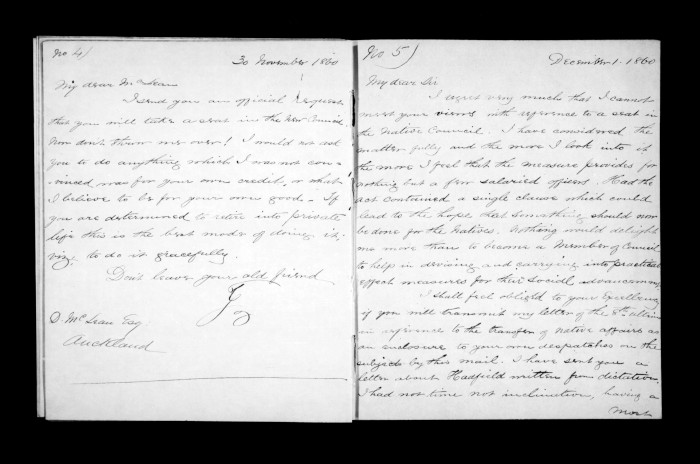 No 4)
30 November 1860
My dear McLean
I send you an official request
that you will take a seat in the New Council.
Now don't throw me over! I would not ask
you to do anything which I was not con-
vinced was for your own credit, or what
I believe to be for your own good. If
you are determined to retire into private
life this is the best mode of doing it,
viz, to do it gracefully.
Don't leave your old friend
D. McLean Esq
Auckland
No 5)
December 1. 1860
My dear Sir
I regret very much that I cannot
meet your views with reference to a seat in
the Native Council. I have considered the
matter fully and the more I look into it
the more I feel that the measure provides for
nothing but a few salaried officers. Had the
act contained a single clause which could
lead to the hope that something should now
be done for the Natives. Nothing would delight
me more than to become a Member of Council
to help in devising and carrying into practical
effect measures for their Social advancement
I shall feel obliged to your Excellency
if you will transmit my letter of the
in reference to the transfer of Native affairs as
an enclosure to your own despatches on the
subject by this mail. I have sent you a
letter about Hadfield written from dictation.
I had not time not inclination, having a
most